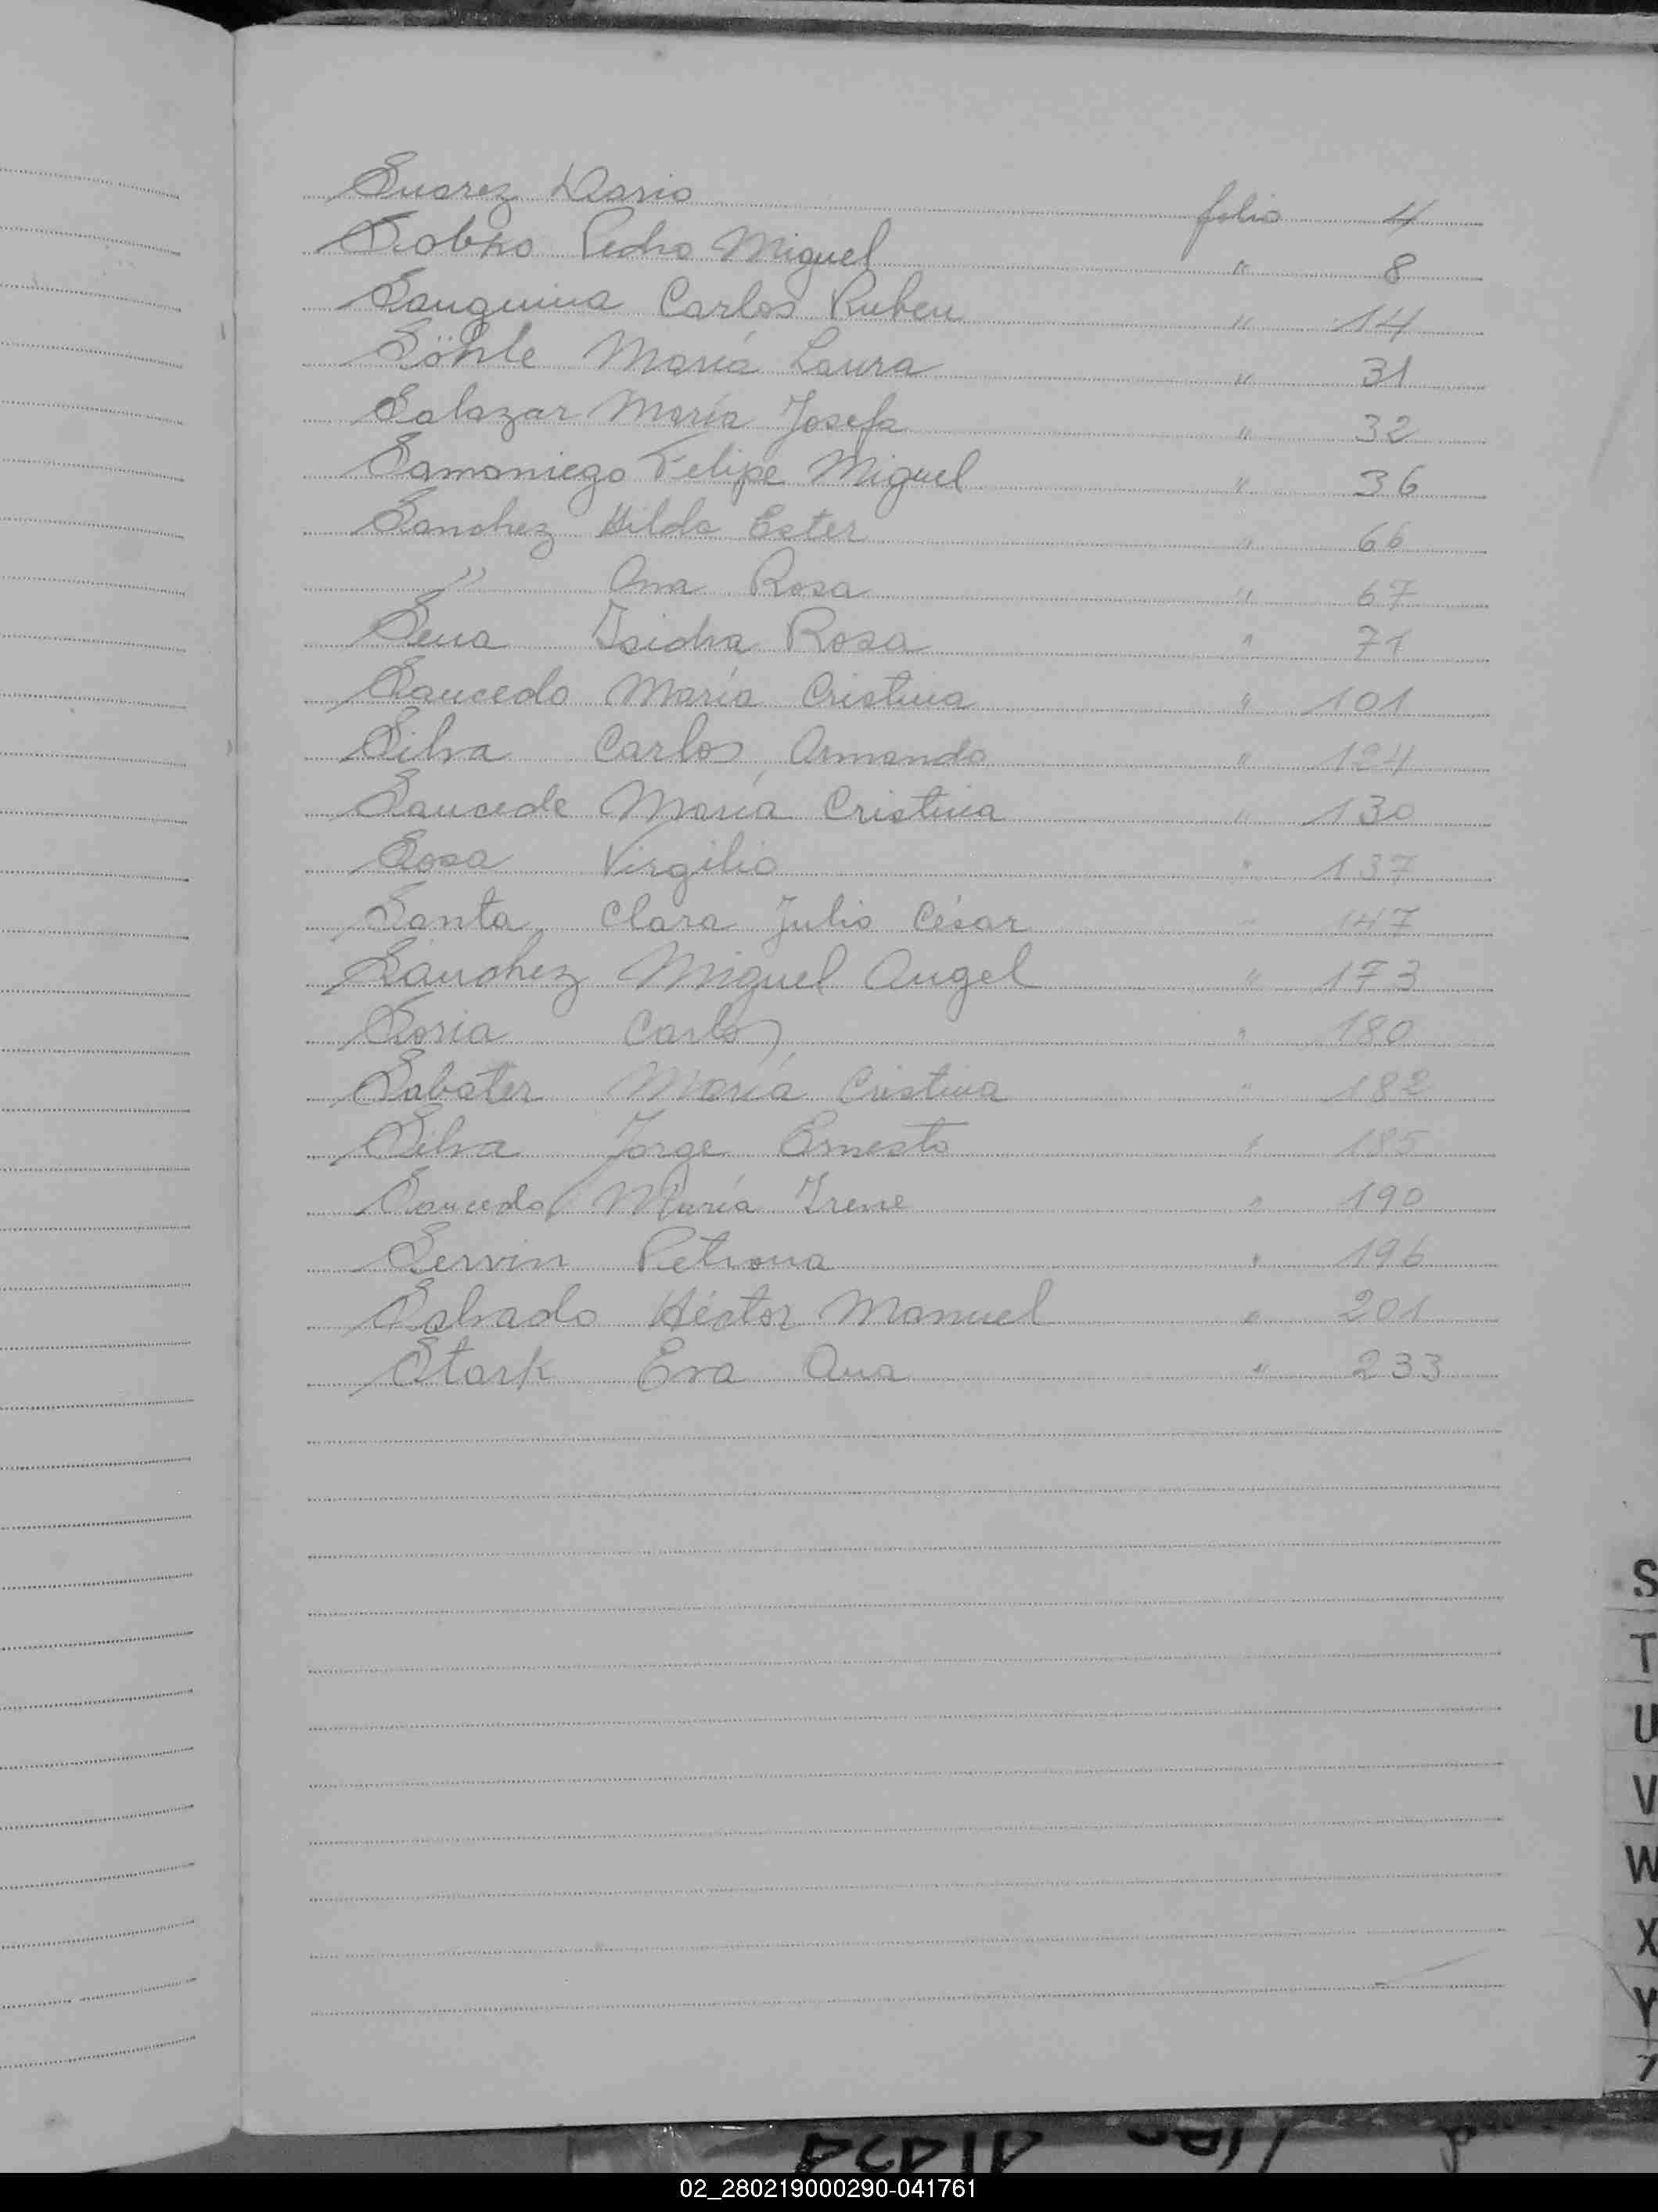 Suarez Dario folio 4
Scobko Pedro Miguel " 8
Sanguina Carlos Ruben " 14
Söhle María Laura " 31
Salazar María Josefa " 32
Samaniego Felipe Miguel " 36
Sanchez Hilda Ester " 66
" Ana Rosa " 67
Sena Isidra Rosa " 71
Saucedo María Cristina " 101
Silva Carlos Armando " 124
Saucede María Cristina " 130
Sosa Virgilio " 137
Santa Clara Julio César " 147
Sánchez Miguel Angel " 173
Soria Carlos " 180
Sabater María Cristina " 182
Silva Jorge Ernesto " 185
Saucedo María Irene " 190
Servin Petrona " 196
Salvado Héctor Manuel " 201
Stark Eva Ana " 233
S
T
U
V
W
X
Y
02_280219000290-041761